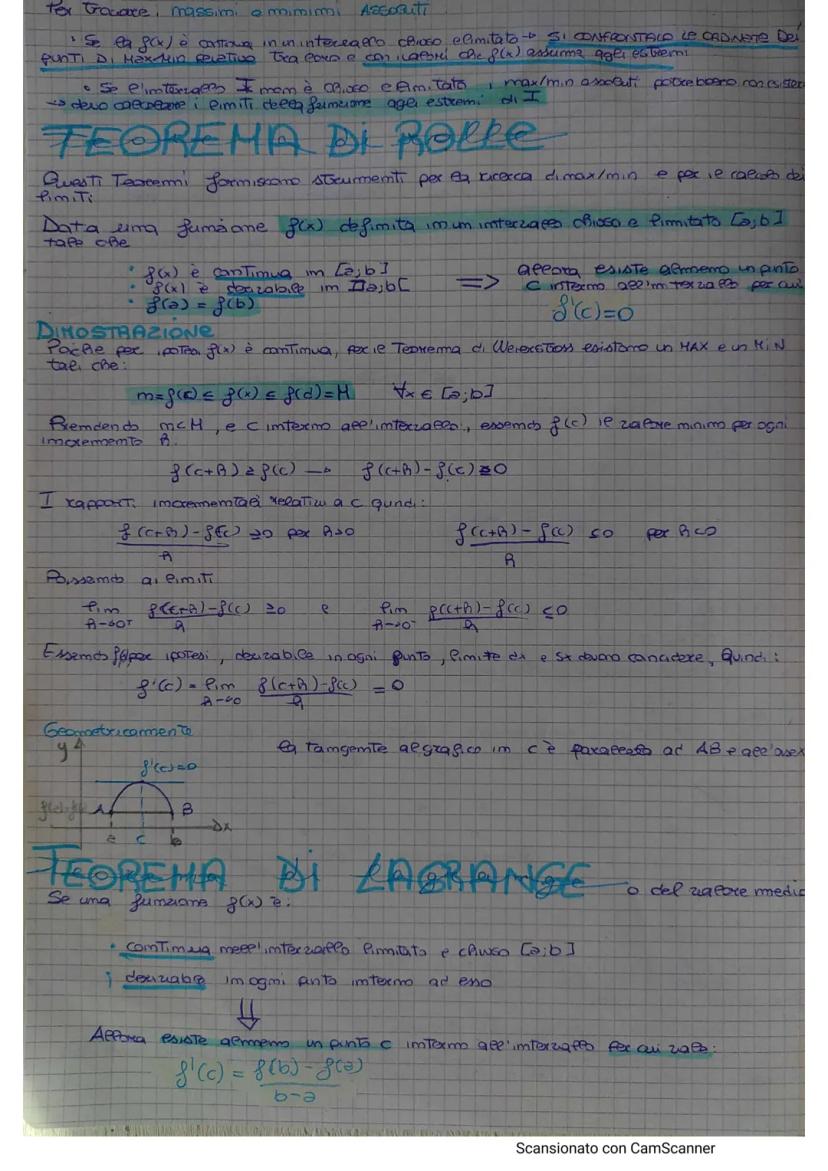 Per trovare, massimi o minimi Assoluti
• Se la f(x) è continua in un intervallo chiuso e limitato → Si CONFRONTANO LE ORDINATE Dei
PUNTI Di Max/Min Relativo tra loro e con i valori che f(x) assume agli estremi
• Se l'intervallo I non è chiuso e limitato, max/min assoluti potrebbero non esister
→ devo calcolare i limiti della funzione agli estremi di I
TEOREMA Di ROLLE
Questi Teoremi forniscono strumenti per la ricerca di max/min e per il calcolo dei
limiti
Data una funzione f(x) definita in un intervallo chiuso e limitato [a;b]
tale che
• f(x) è continua in [a;b]
• f(x) è derivabile in ]a;b[
• f(a) = f(b)
=> allora esiste almeno un punto
c interno all'intervallo per cui
f'(c)=0
DIMOSTRAZIONE
Poiché per ipotesi f(x) è continua, per il Teorema di Weierstrass esistono un MAX e un MiN
tali che:
m=f(c) ≤ f(x) ≤ f(d)=M ∀x ∈ [a;b]
Prendendo m<M, e c interno all'intervallo, essendo f(c) il valore minimo per ogni
incremento h.
f(c+h) ≥ f(c) → f(c+h)-f(c) ≥0
I rapporti incrementali relativi a c quindi:
f(c+h)-f(c) ≥0 per h>0 f(c+h)-f(c) ≤0 per h<0
h h
Passando ai limiti
lim f(c+h)-f(c) ≥0 e lim f(c+h)-f(c) ≤0
h→0⁺ h h→0⁻ h
Essendo f per ipotesi, derivabile in ogni punto, limite dx e sx devono coincidere, Quindi:
f'(c) = lim f(c+h)-f(c) = 0
h→0 h
Geometricamente
la tangente al grafico in c è parallela ad AB e all'asse x
y
f'(c)=0
A B
x
a c b
TEOREMA Di LAGRANGE o del valore medio
Se una funzione f(x) è:
• continua nell'intervallo limitato e chiuso [a;b]
• derivabile in ogni punto interno ad esso
⇓
Allora esiste almeno un punto c interno all'intervallo per cui vale:
f'(c) = f(b)-f(a)
b-a
Scansionato con CamScanner